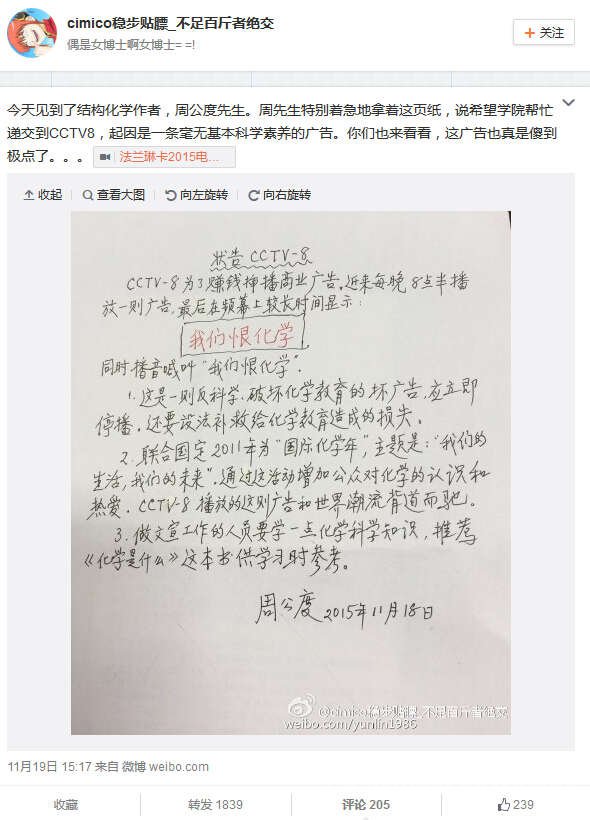 cimico稳步贴膘_不足百斤者绝交
偶是女博士啊女博士= =!
+ 关注
今天见到了结构化学作者，周公度先生。周先生特别着急地拿着这页纸，说希望学院帮忙
递交到CCTV8，起因是一条毫无基本科学素养的广告。你们也来看看，这广告也真是傻到
极点了。。。 法兰琳卡2015电...
收起 查看大图 向左旋转 向右旋转
状告 CCTV-8
CCTV-8为了赚钱插播商业广告。近来每晚8点半播
放一则广告，最后在频幕上较长时间显示：
我们恨化学
同时播音喊叫“我们恨化学”.
1. 这是一则反科学、破坏化学教育的坏广告，应立即
停播，还要设法补救给化学教育造成的损失。
2. 联合国定2011年为“国际化学年”，主题是：“我们的
生活，我们的未来”。通过这活动增加公众对化学的认识和
热爱。CCTV-8播放的这则广告和世界潮流背道而驰。
3. 做文宣工作的人员要学一点化学科学知识，推荐
《化学是什么》这本书供学习时参考。
周公度 2015年11月18日
@cimico稳步贴膘_不足百斤者绝交
weibo.com/yunlin1986
11月19日 15:17 来自 微博 weibo.com
收藏 转发 1839 评论 205 239